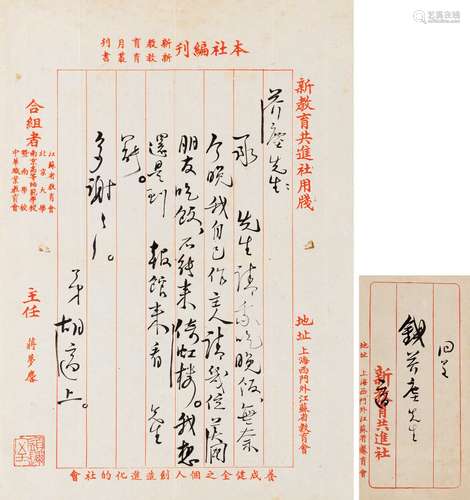 本社編刊
新教育月刊
新教育叢書
新教育共進社用牋
地址 上海西門外江蘇省教育會
芥塵先生:
承 先生請我吃晚飯,無奈
今晚我自己作主人請幾位英國
朋友吃飯,不能來倚虹樓。我想
還是到 報館來看 先生
罷。
多謝多謝。
弟胡適上。
合組者
江蘇省教育會
北京大學
南京高等師範學校
暨南學校
中華職業教育會
主任 蔣夢麐
養成健全之個人創造進化的社會
回呈
錢芥塵先生
適
新教育共進社
地址 上海西門外江蘇省教育會